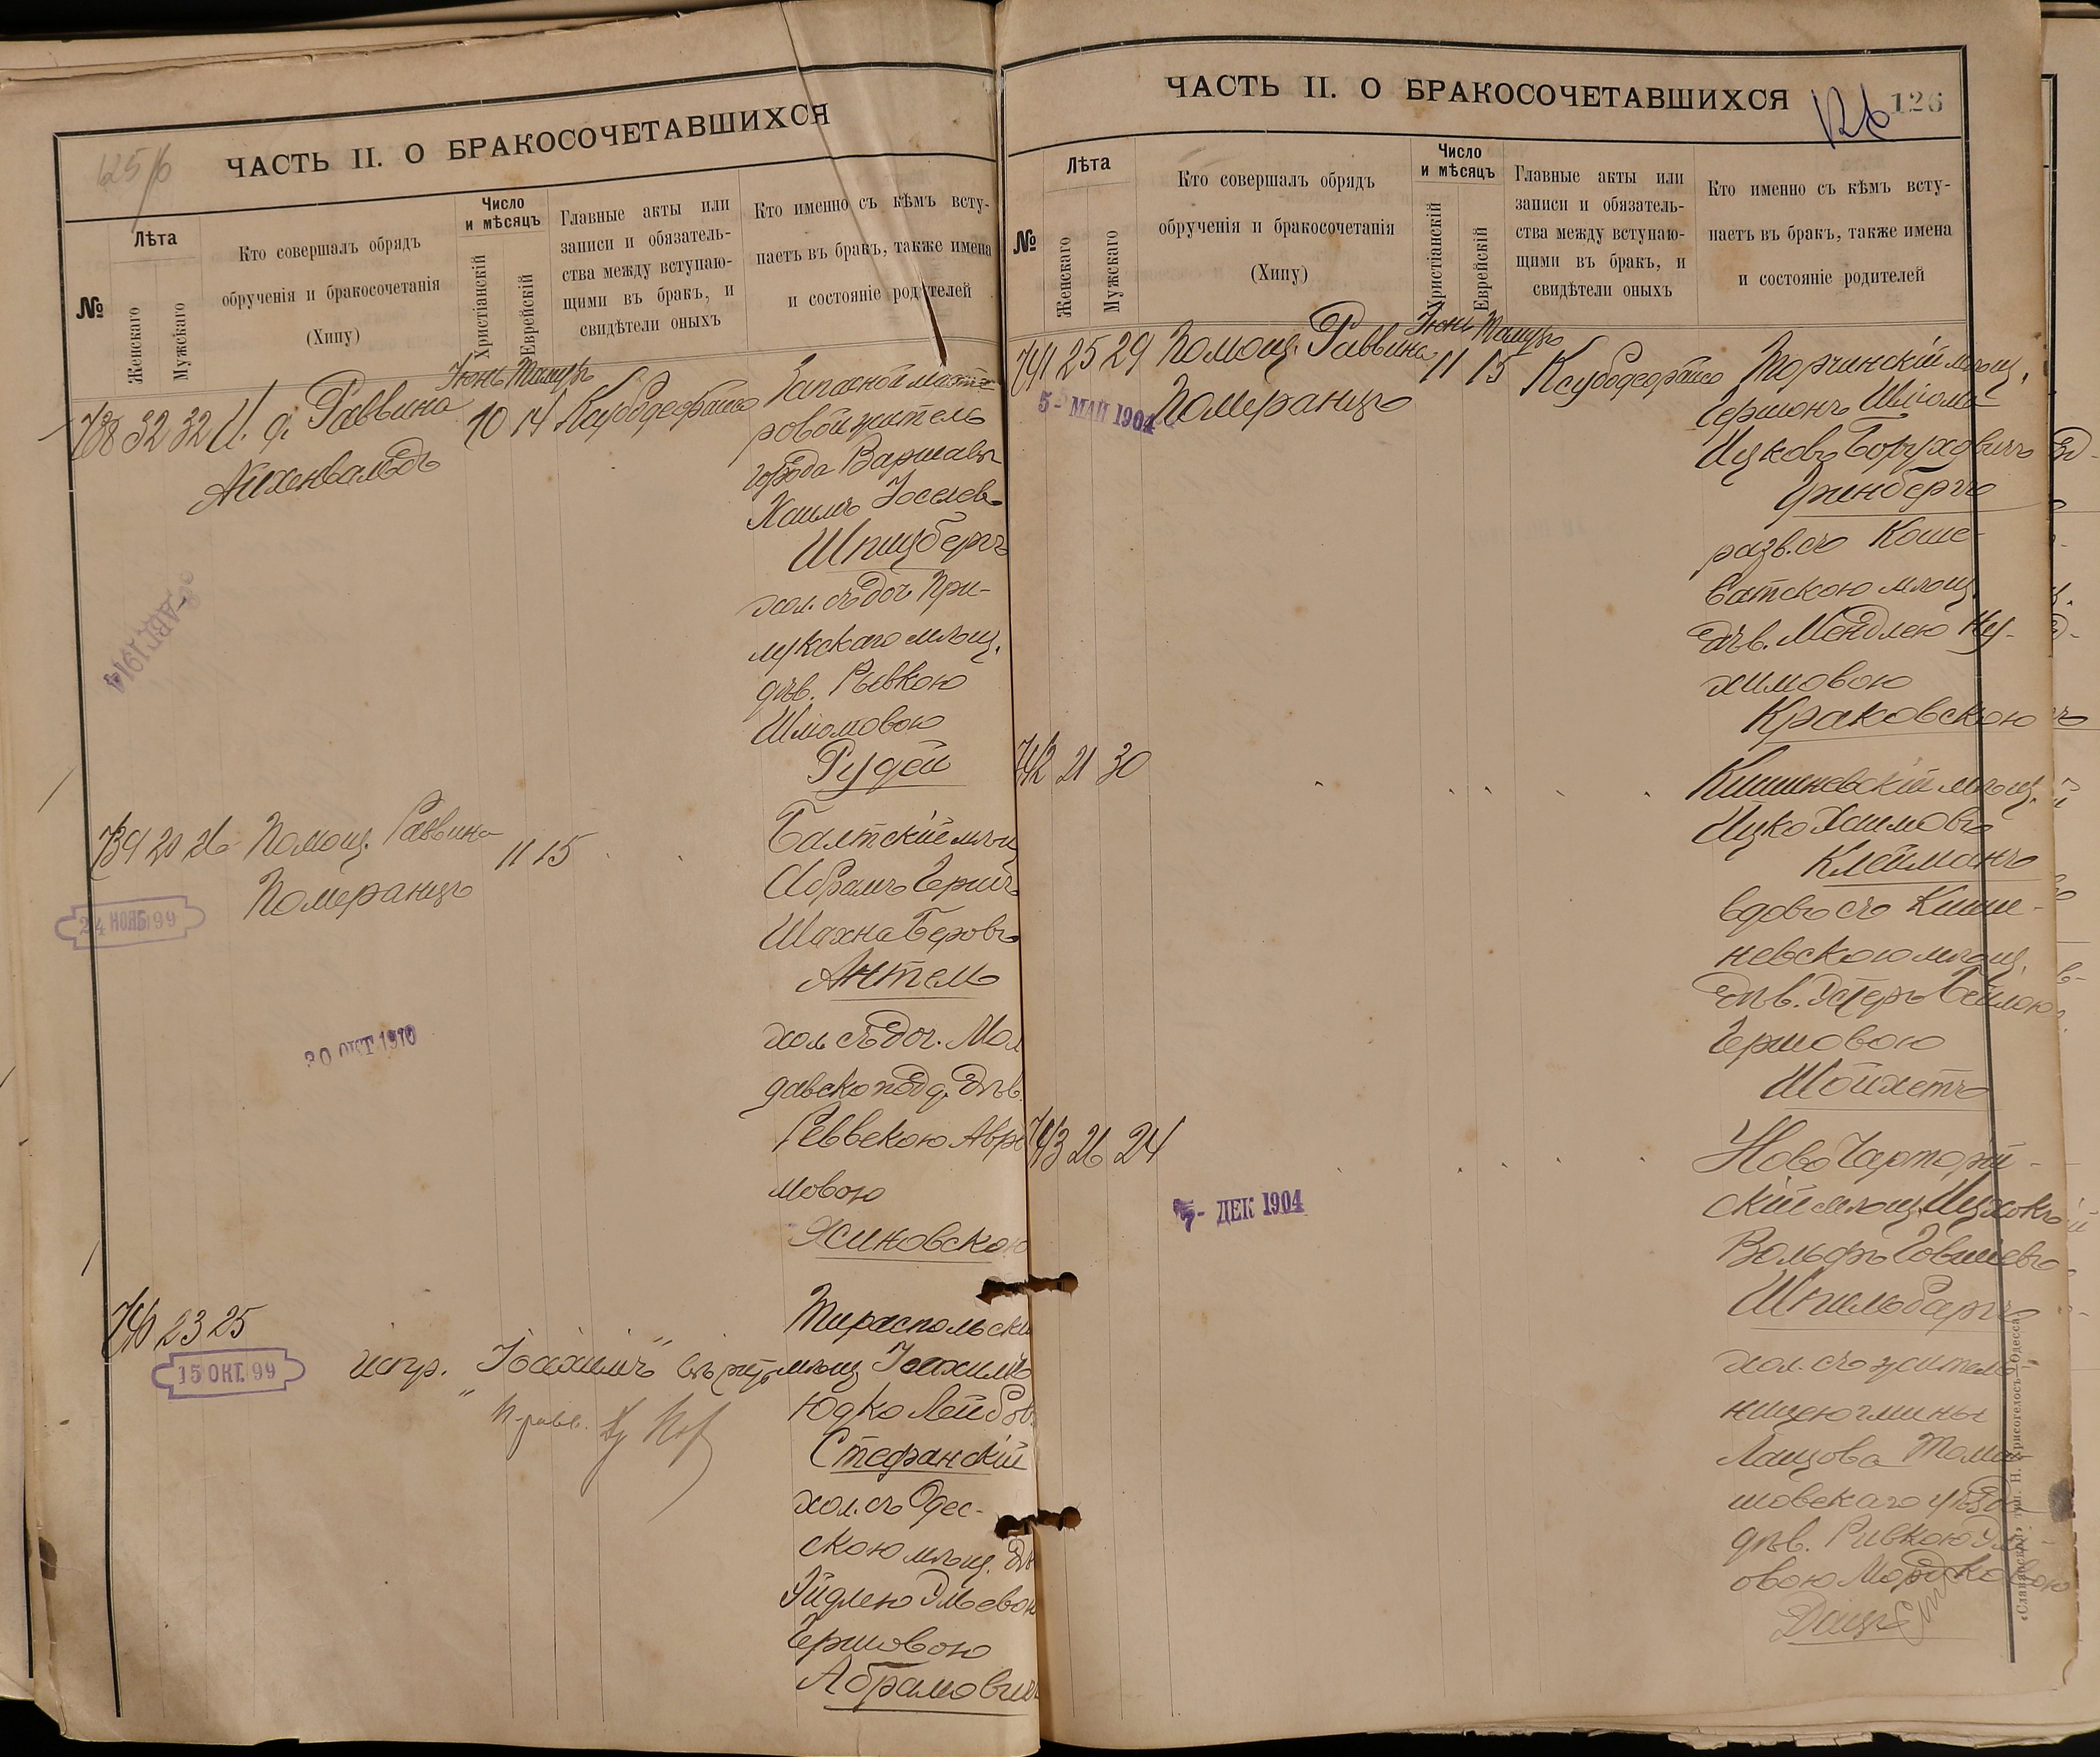 125/6
ЧАСТЬ II. О БРАКОСОЧЕТАВШИХСЯ
№
Лѣта
Женскаго
Мужскаго
Кто совершалъ обрядъ
обрученія и бракосочетанія
(Хипу)
Число
и мѣсяцъ
Христіанскій
Еврейскій
Главные акты или
записи и обязатель-
ства между вступаю-
щими въ бракъ, и
свидѣтели оныхъ
Кто именно съ кѣмъ всту-
паетъ въ бракъ, также имена
и состояніе родителей
Іюнь Тамузъ
738 32 32 И. д. Раввина 10 14
Айхенвальдъ
Запасной
ровой житель
города Варшавы
Хаимъ Іоселев
Шпицбергъ
хол. съ доч. При-
лукскаго мѣщ.
дѣв. Рывкою
Шліомовою
Рудой
8- АВГ 1914
739 20 26 Помощ. Раввина 11 15
Померанцъ
24 НОЯБ 99
30 ОКТ 1910
Балтскій мѣщ
Абрамъ Герш
Шахна Беровъ
Антель
хол. съ доч. Мол
давско подд. дѣв.
Реввекою Авра
мовою
Ясиновскою
740 23 25
15 ОКТ. 99
испр. "Іоахимъ"
Тираспольскі
мѣщ Іоахимъ
Юдко Лейбов.
Стефанскій
хол. съ Одес-
скою мѣщ. дѣ
Эйдлею
Гершовою
Абрамович
ЧАСТЬ II. О БРАКОСОЧЕТАВШИХСЯ
126
126
№
Лѣта
Женскаго
Мужскаго
Кто совершалъ обрядъ
обрученія и бракосочетанія
(Хипу)
Число
и мѣсяцъ
Христіанскій
Еврейскій
Главные акты или
записи и обязатель-
ства между вступаю-
щими въ бракъ, и
свидѣтели оныхъ
Кто именно съ кѣмъ всту-
паетъ въ бракъ, также имена
и состояніе родителей
Іюнь Тамузъ
741 25 29 Помощ. Раввина 11 15
Померанцъ
5- МАЙ 1904
Торчинскій мѣщ.
Гершонъ Шліома
Ицковъ Боруховичъ
Гринбергъ
разв. съ Коше-
ватскою мѣщ.
дѣв. Мендлею Ну-
химовою
Краковскою
742 21 30
Кишиневскій мѣщ.
Ицко Хаимовъ
Клейманъ
вдов. съ Киши-
невскою мѣщ.
дѣв. Эстеръ Бейлою
Гершовою
Шойхетъ
743 26 24
7- ДЕК 1904
Ново Чарторій-
скій мѣщ. Ицхокъ
Вольфъ Говшіевъ
Шпильбаргъ
хол. съ житель-
ницею гмины
Лащова Тома-
шовскаго уѣзда
дѣв. Ривкою
овою Мордковою
«Славянская» тип. Н. Хрисогелосъ—Одесса